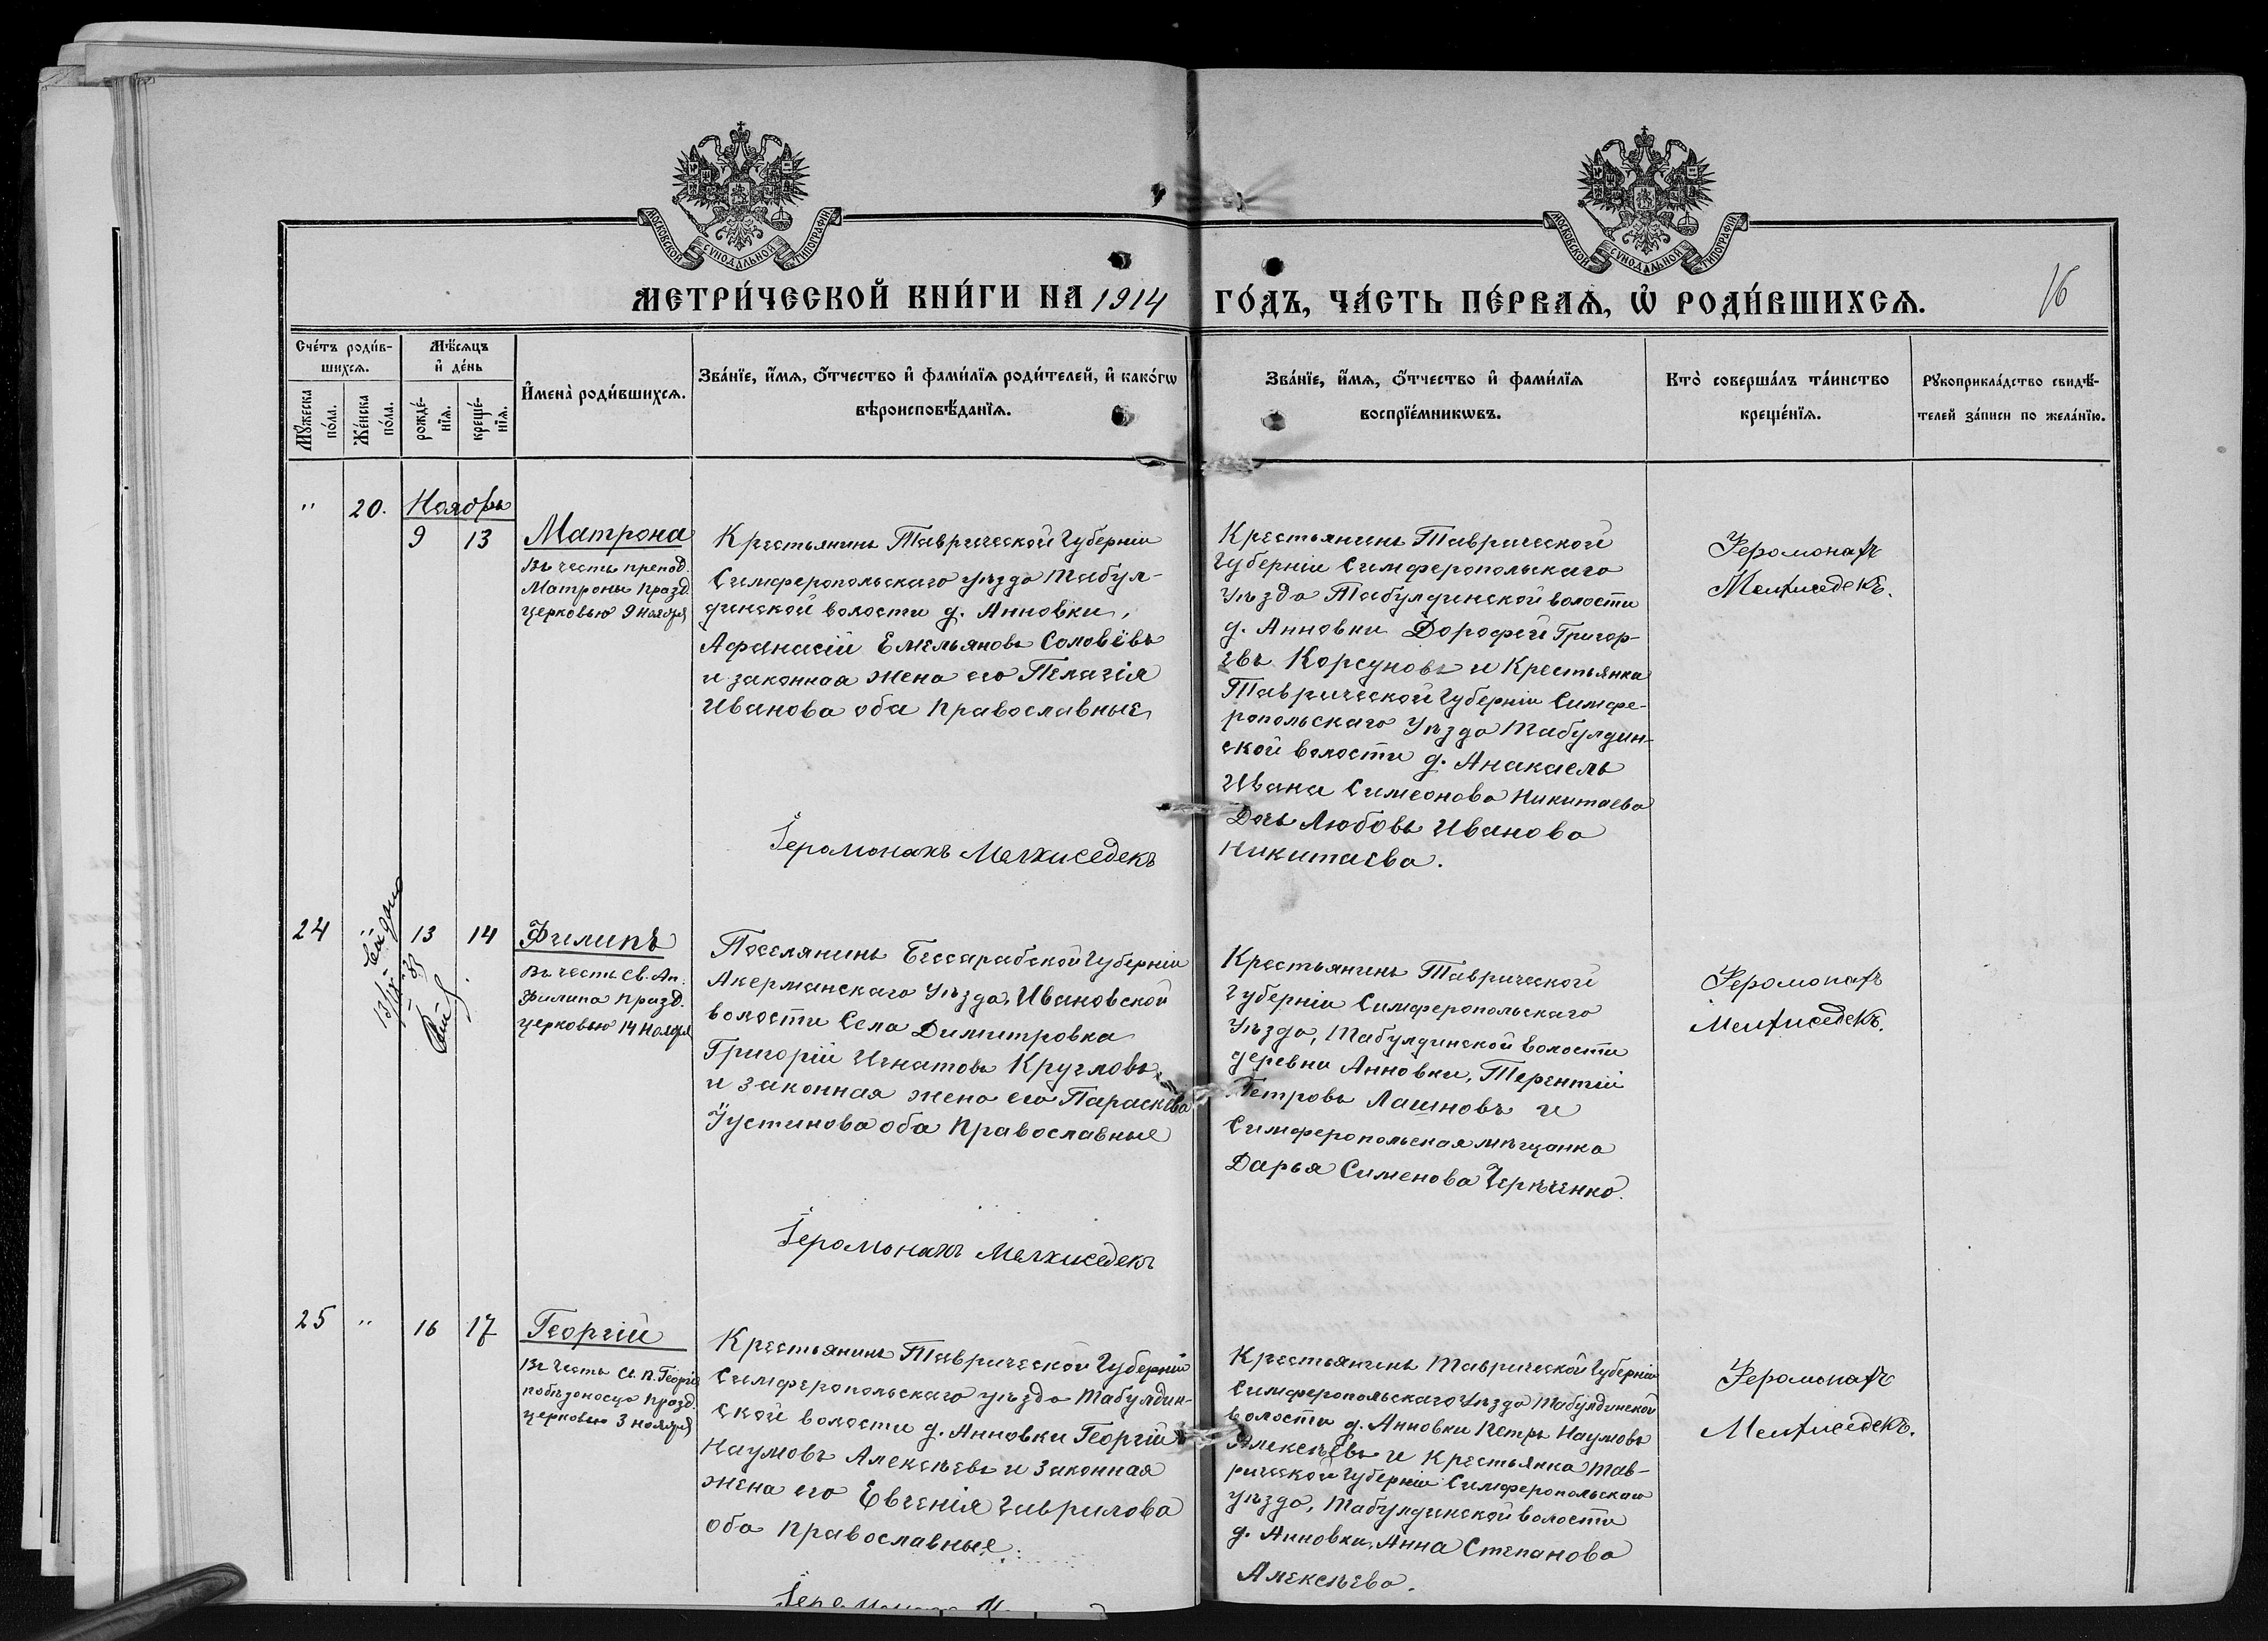 МОСКОВСКОЙ СѴНОДАЛЬНОЙ ТИПОГРАФІИ
МОСКОВСКОЙ СѴНОДАЛЬНОЙ ТИПОГРАФІИ
МЕТРИ́ЧЕСКОЙ КНИ́ГИ НА 1914 ГО́ДЪ, ЧА́СТЬ ПЕ́РВАѦ, Ѡ҆ РОДИ́ВШИХСѦ.
16
Сче́тъ роди́в-
шихсѧ.
Мꙋ́жеска
по́ла.
Же́нска
по́ла.
Мѣ́сѧцъ
и҆ де́нь
рожде́-
нїѧ.
креще́-
нїѧ.
И҆мена̀ роди́вшихсѧ.
Зва́нїе, и҆́мѧ, ѻ҆́тчество и҆ фами́лїѧ роди́телей, и҆ како́гѡ
вѣроисповѣ́данїѧ.
Зва́нїе, и҆́мѧ, ѻ҆́тчество и҆ фами́лїѧ
воспрїе́мникѡвъ.
Кто̀ соверша́лъ та́инство
креще́нїѧ.
Рꙋкоприкла́дство свидѣ́-
телей за́писи по жела́нїю.
" 20. Ноябрь
9 13
Матрона
Въ честь препод.
Матроны празд.
церковью 9 Ноября
Крестьянинъ Таврической Губерніи
Симферопольскаго уѣзда Табул-
динской волости д. Анновки,
Афанасій Емельяновъ Соловьёвъ
и законная жена его Пелагія
Иванова оба Православные
Іеромонахъ Мелхиседекъ
Крестьянинъ Таврической
Губерніи Симферопольскаго
Уѣзда Табулдинской волости
д. Анновки Дорофей Григор-
евъ Корсуновъ и Крестьянка
Таврической Губерніи Симфе-
ропольскаго Уѣзда Табулдин-
ской волости д. Анакаель
Ивана Симеонова Никитаева
Дочь Любовь Иванова
Никитаева.
Іеромонахъ
Мелхиседекъ.
24 " 13 14
Филипъ
Въ честь Св. Ап.
Филипа празд.
церковью 14 Ноября
Поселянинъ Бессарабской Губерніи
Акерманскаго Уѣзда, Ивановской
волости Села Димитровка
Григорій Игнатовъ Кругловъ
и законная жена его Параскева
Іустинова оба Православные
Іеромонахъ Мелхиседекъ
Крестьянинъ Таврической
Губерніи Симферопольскаго
Уѣзда, Табулдинской волости
деревни Анновки, Терентій
Петровъ Лашновъ и
Симферопольская мѣщанка
Дарья Сименова
Іеромонахъ
Мелхиседекъ.
25 " 16 17
Георгій
Въ честь Георгія
побѣдоносца празд.
церковью 3 ноября
Крестьянинъ Таврической Губерніи
Симферопольскаго уѣзда Табулдин-
ской волости д. Анновки Георгій
Наумовъ Алексѣевъ и законная
жена его Евгенія Гаврилова
оба Православные.
Крестьянинъ Таврической Губерніи
Симферопольскаго Уѣзда Табулдинской
волости д. Анновки Петръ Наумовъ
Алексѣевъ и Крестьянка Тав-
рической Губерніи Симферопольскаго
уѣзда, Табулдинской волости
д. Анновки, Анна Степанова
Алексѣева.
Іеромонахъ
Мелхиседекъ.